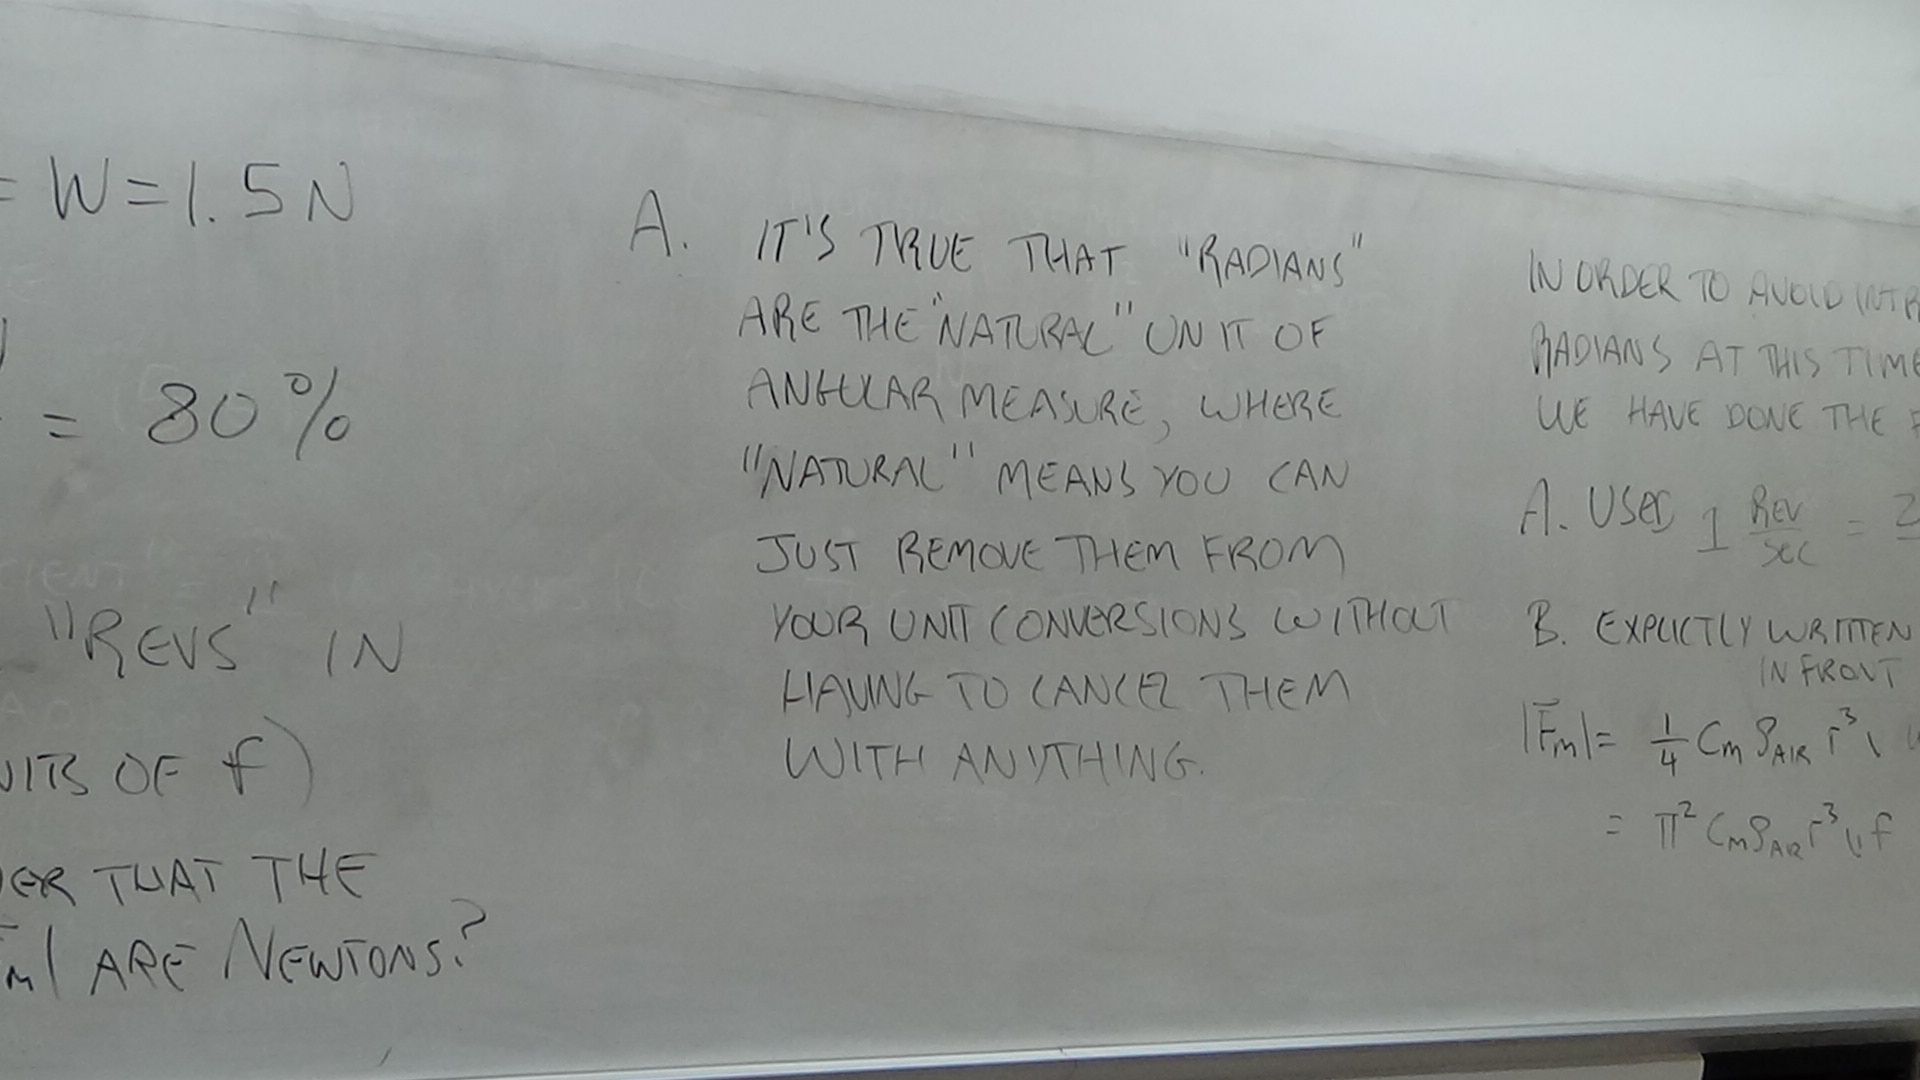 = W = 1.5 N
= 80%
"REVS" IN
OF f)
THAT THE
ARE NEWTONS?
A. IT'S TRUE THAT "RADIANS"
ARE THE "NATURAL" UNIT OF
ANGULAR MEASURE, WHERE
"NATURAL" MEANS YOU CAN
JUST REMOVE THEM FROM
YOUR UNIT CONVERSIONS WITHOUT
HAVING TO CANCEL THEM
WITH ANYTHING.
IN ORDER TO AVOID
RADIANS AT THIS TIME
WE HAVE DONE THE
A. USED 1 REV/SEC =
B. EXPLICTLY WRITTEN
IN FRONT
|F̄m| = 1/4 Cm ρAIR r³
= π² Cm ρAIR r³ v f